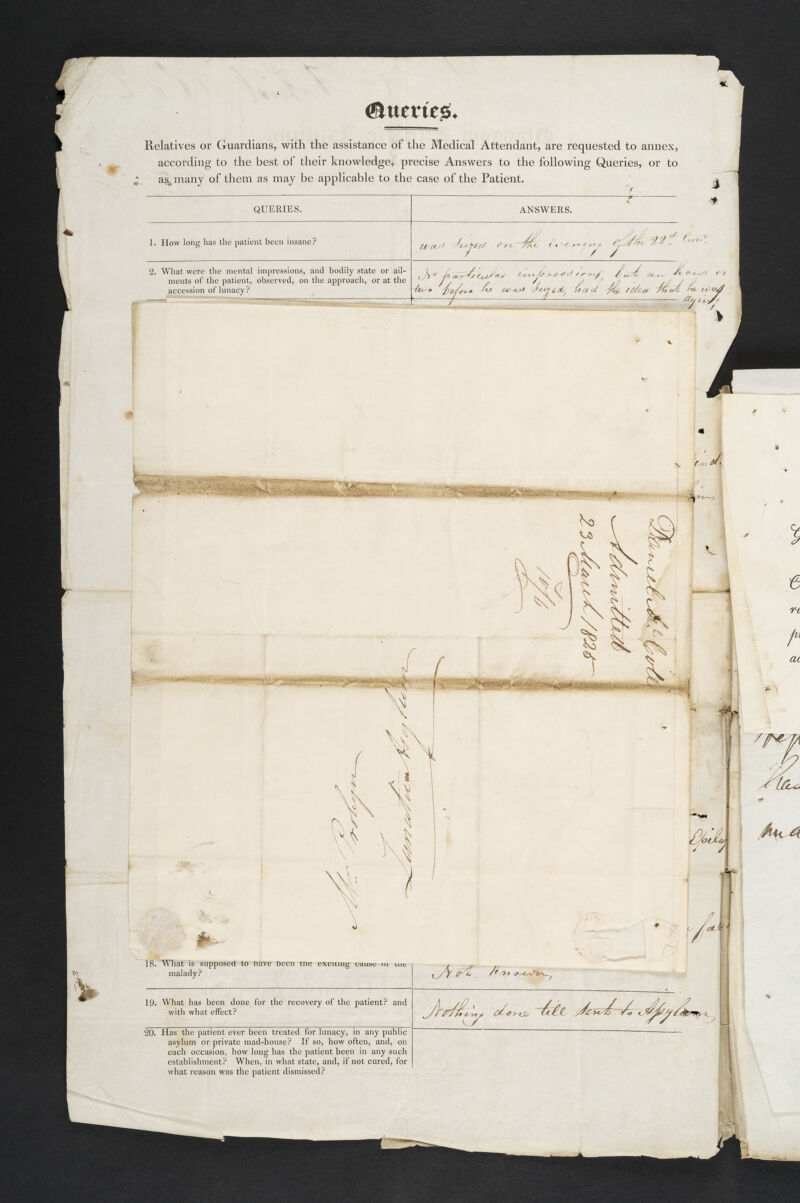 Queries.
Relatives or Guardians, with the assistance of the Medical Attendant, are requested to annex,
according to the best of their knowledge, precise Answers to the following Queries, or to
as many of them as may be applicable to the case of the Patient.
QUERIES.
ANSWERS.
1. How long has the patient been insane?
was seized on the evening of the 22d
2. What were the mental impressions, and bodily state or ail-
ments of the patient, observed, on the approach, or at the
accession of lunacy?
No particular impressions, but an hour or
two before he was seized, had the idea that he was
dying,
Daniel
Admitted
23 March 1828
Lunatic Asylum
18. What is supposed to have been the exciting cause of the
malady?
Not Known
19. What has been done for the recovery of the patient? and
with what effect?
Nothing done till sent to Asylum
20. Has the patient ever been treated for lunacy, in any public
asylum or private mad-house? If so, how often, and, on
each occasion, how long has the patient been in any such
establishment? When, in what state, and, if not cured, for
what reason was the patient dismissed?